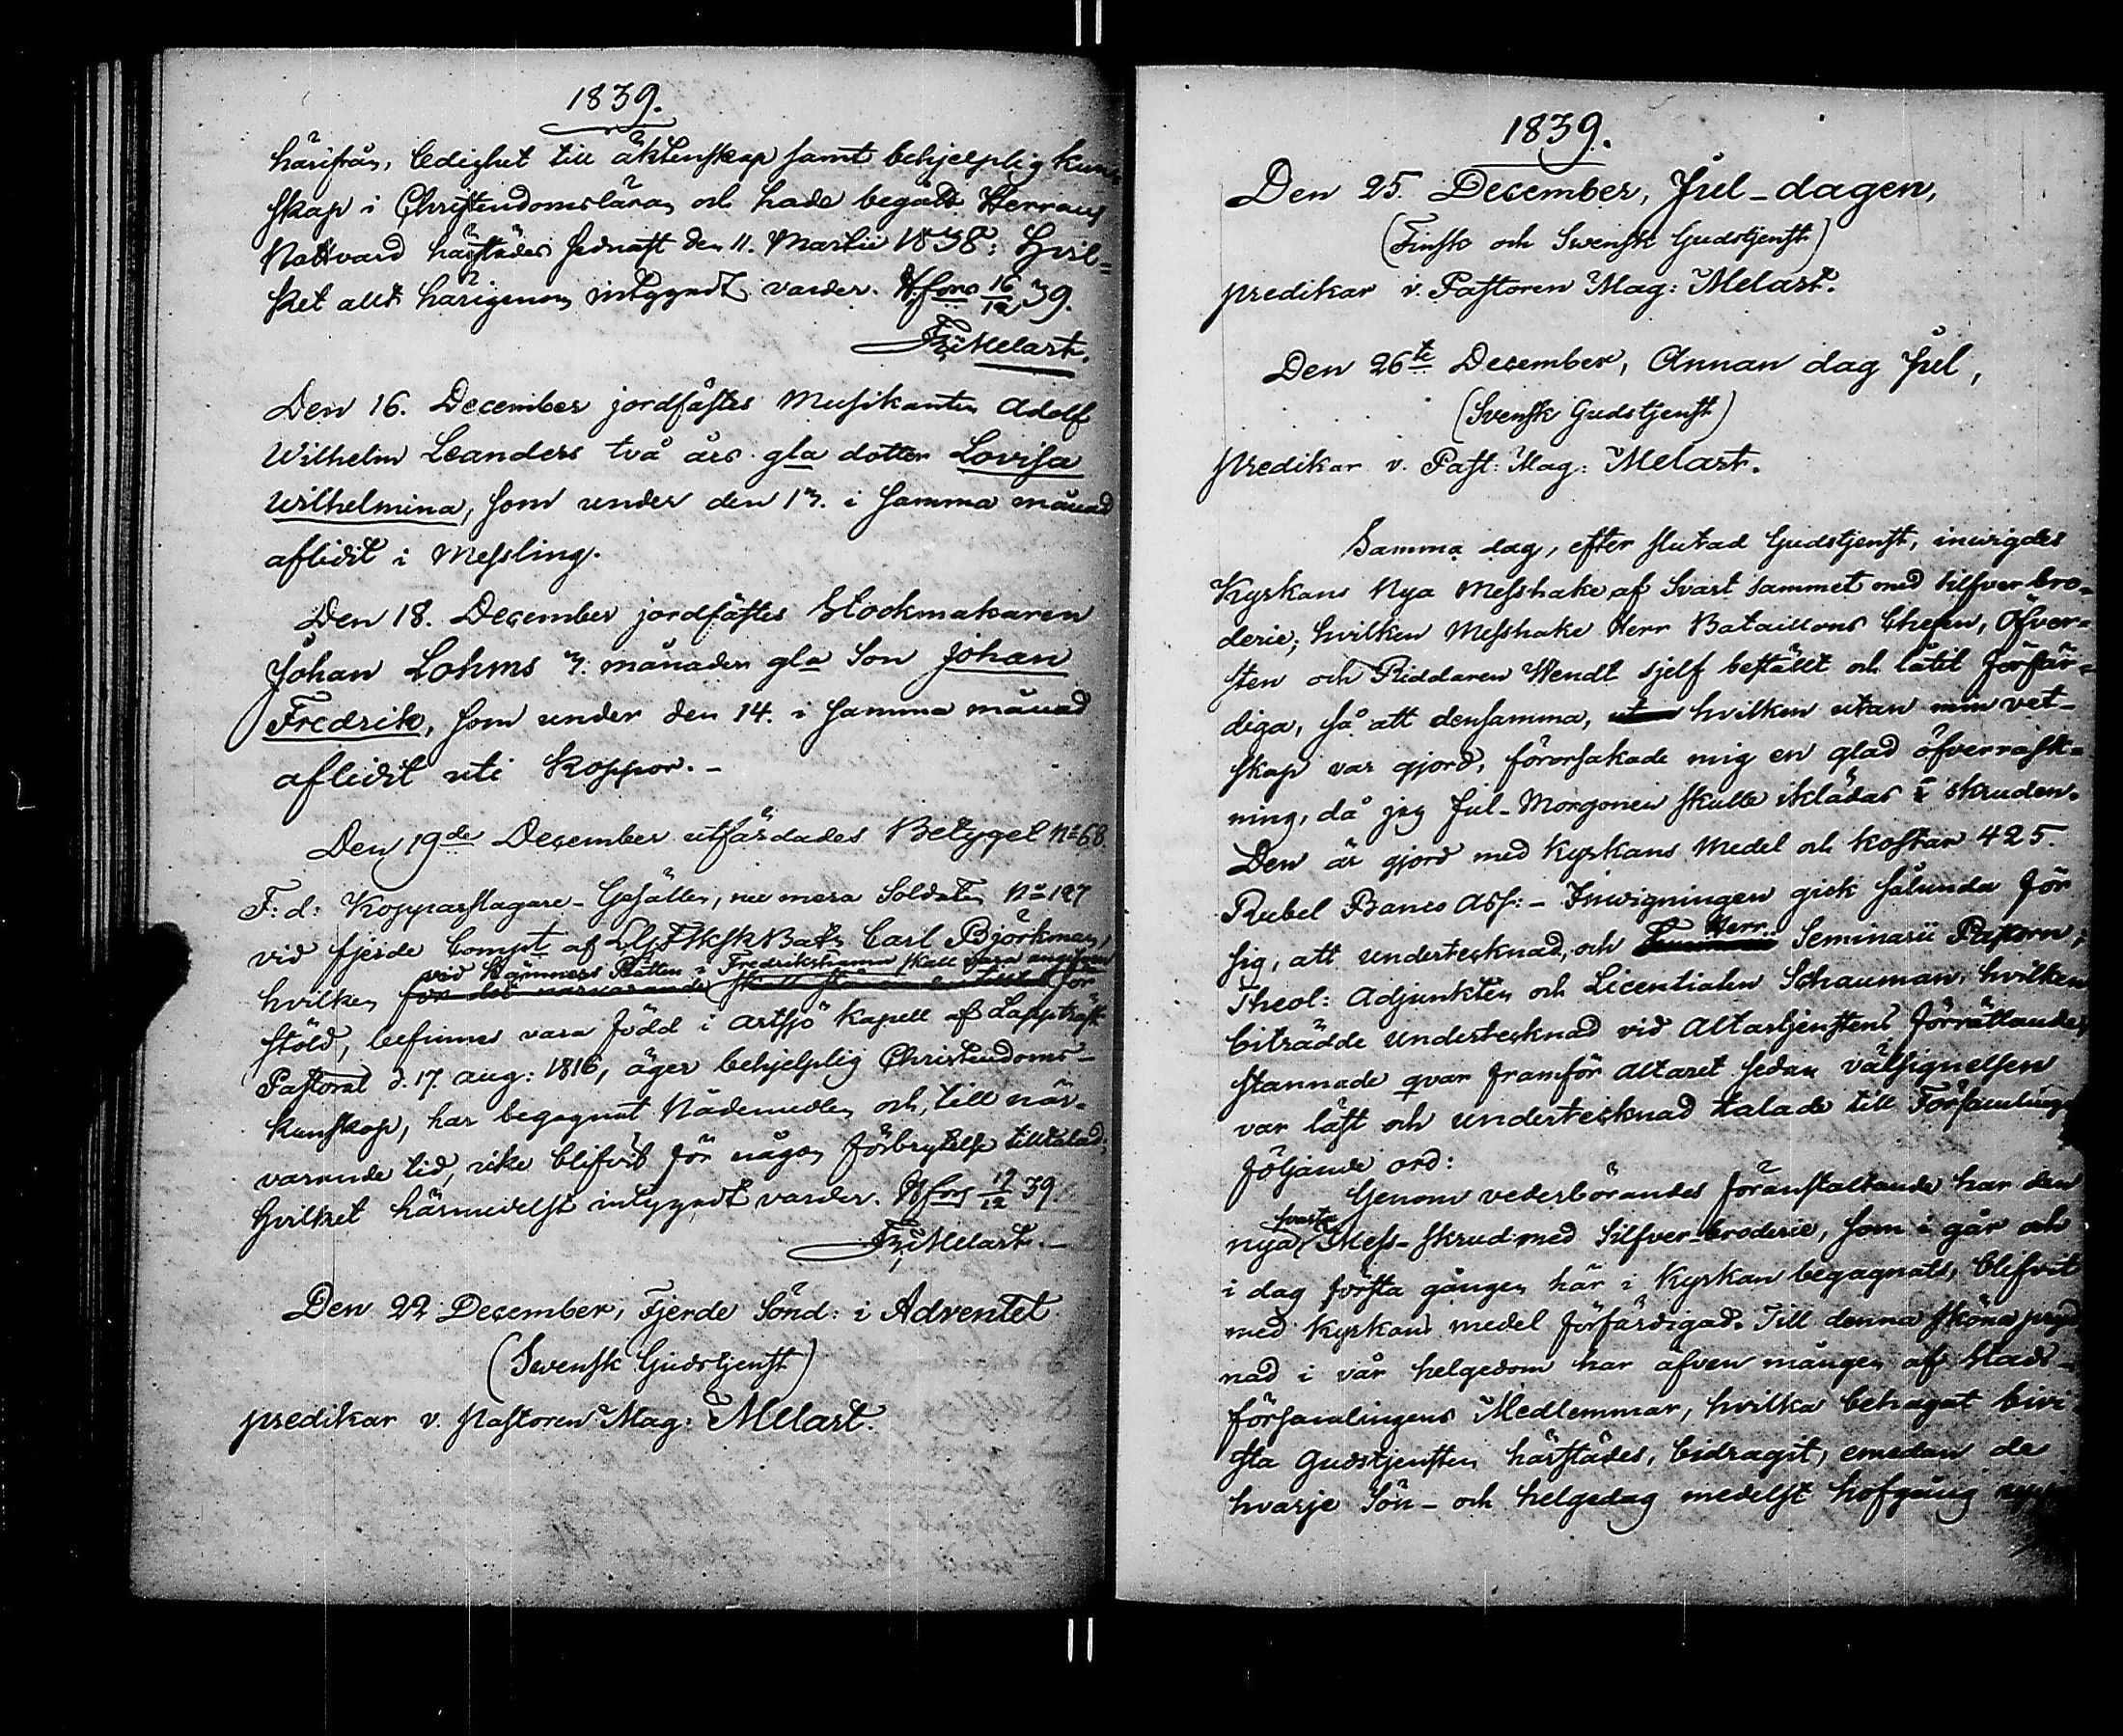 1839.
härifrån, ledighet till äktenskap samt behjelplig kun-
skap i Christendomsläran och hade begått Herrans
Nattvard härstädes sednast den 11. Martii 1838. Hvil-
ket allt härigenom intygadt varder. H:fors 16/12 39.
Melart.
Den 16. December jordfästes Musikanten Adolf
Wilhelm Leanders två års gla dotter Lovisa
Wilhelmina, som under den 13. i samma månad
aflidit i Messling.
Den 18. December jordfästes Stockmakaren
Johan Lohms 3. månader gla Son Johan
Fredrik, som under den 14. i samma månad
aflidit uti Koppor. -
Den 19de December utfärdades Betyget No 68.
F: d: Kopparslagare-Gesällen, nu mera Soldaten No 127
vid fjerde Compt af Carl Björkman,
vid Kämners Rätten i Fredrikshamn skall vara angifven
hvilken för det närvarande för
stöld, befinnes vara född i Artsjö Kapell af Lappträsk
Pastorat d. 17. Aug: 1816, äger behjelplig Christendoms-
kunskap, har begagnat Nådemedlen och, till när-
varande tid, icke blifvit för någon förbrytelse tilltalad;
Hvilket härmedelst intygadt varder. H:fors 19/12 39
Melart. -
Den 22 December, Fjerde Sönd: i Adventet
(Swensk Gudstjenst)
predikar v. Pastoren Mag: Melart.
1839.
Den 25. December, Jul-dagen,
(Finsk och Swensk Gudstjenst)
predikar v. Pastoren Mag: Melart.
Den 26te December, Annan dag Jul,
(Svensk Gudstjenst)
predikar v. Past: Mag: Melart.
Samma dag, efter slutad Gudstjenst, inwigdes
Kyrkans Nya Messhake af Svart Sammet med Silfver bro-
derie; hvilken Messhake Herr Bataillons Chefen, Öfver-
sten och Riddaren Wendt sjelf beställt och låtit förfär-
diga, så att densamma, utan hvilken utan min vet-
skap var gjord, förorsakade mig en glad öfverrask-
ning, då jag Jul-Morgonen skulle iklädas i skruden.
Den är gjord med Kyrkans Medel och kostar 425.
Rubel Banco Ass: - Inwigningen gick sålunda för
Herr
sig, att undertecknad, och Seminarii Pastorn,
Theol: Adjunkten och Licentiaten Schauman, hvilken
biträdde undertecknad vid Altartjenstens förrättande,
stannade qvar framför Altaret sedan välsignelsen
var läst och undertecknad talade till Församlingen
följande ord:
Genom vederbörandes föranstaltande har den
svarta
nya Mess-skrud med Silfver-broderie, som i går och
i dag första gången här i Kyrkan begagnats, blifvit
med Kyrkans medel förfärdigad. Till denna sköna pryd-
nad i vår helgedom har äfven mången af Stads-
församlingens Medlemmar, hvilka behagat bivi-
sta Gudstjensten härstädes, bidragit, emedan de
hvarje Sön- och helgedag medelst håfgång